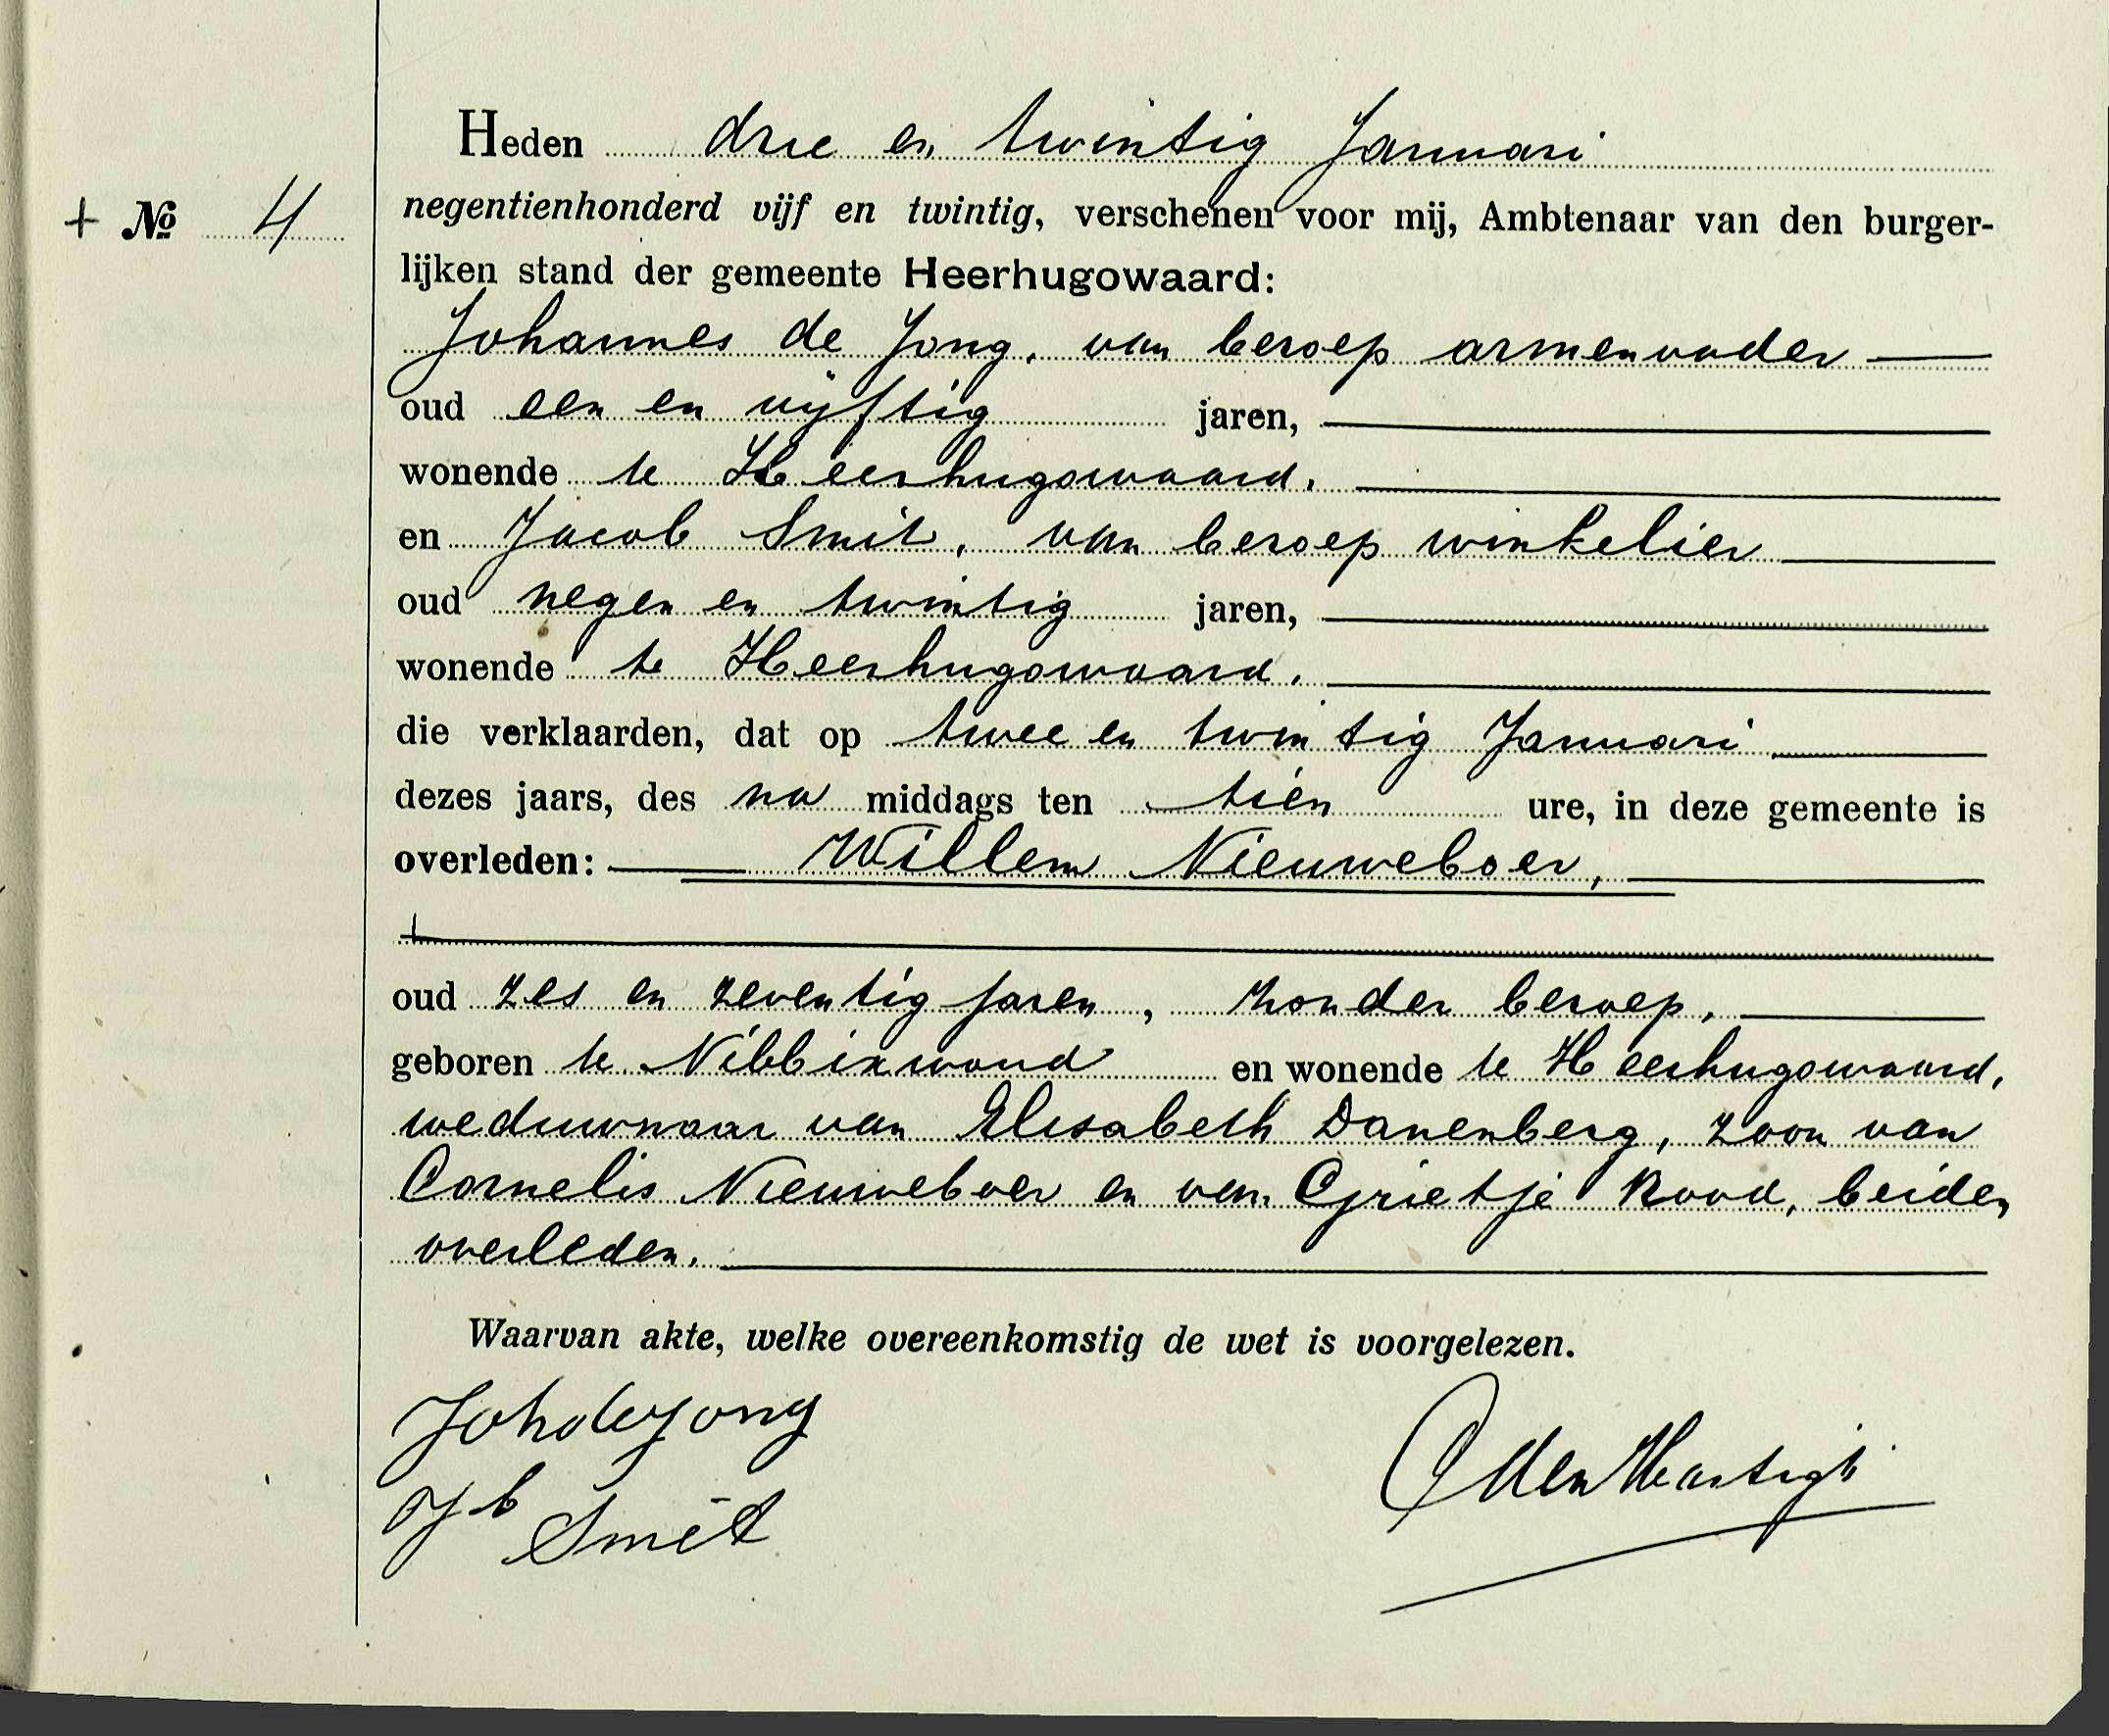 Heden drie en twintig Januari
+ No 4
negentienhonderd vijf en twintig, verschenen voor mij, Ambtenaar van den burger-
lijken stand der gemeente Heerhugowaard:
Johannes de Jong, van beroep armenvader
oud een en vijftig jaren,
wonende te Heerhugowaard,
en Jacob Smit, van beroep winkelier
oud negen en twintig jaren,
wonende te Heerhugowaard,
die verklaarden, dat op twee en twintig Januari
dezes jaars, des na middags ten tien ure, in deze gemeente is
overleden: Willem Nieuweboer,
oud zes en zeventig jaren, zonder beroep,
geboren te Nibbixwoud en wonende te Heerhugowaard,
weduwnaar van Elisabeth Danenberg, zoon van
Cornelis Nieuweboer en van Grietje Rood, beiden
overleden.
Waarvan akte, welke overeenkomstig de wet is voorgelezen.
Joh de Jong
Jb Smit